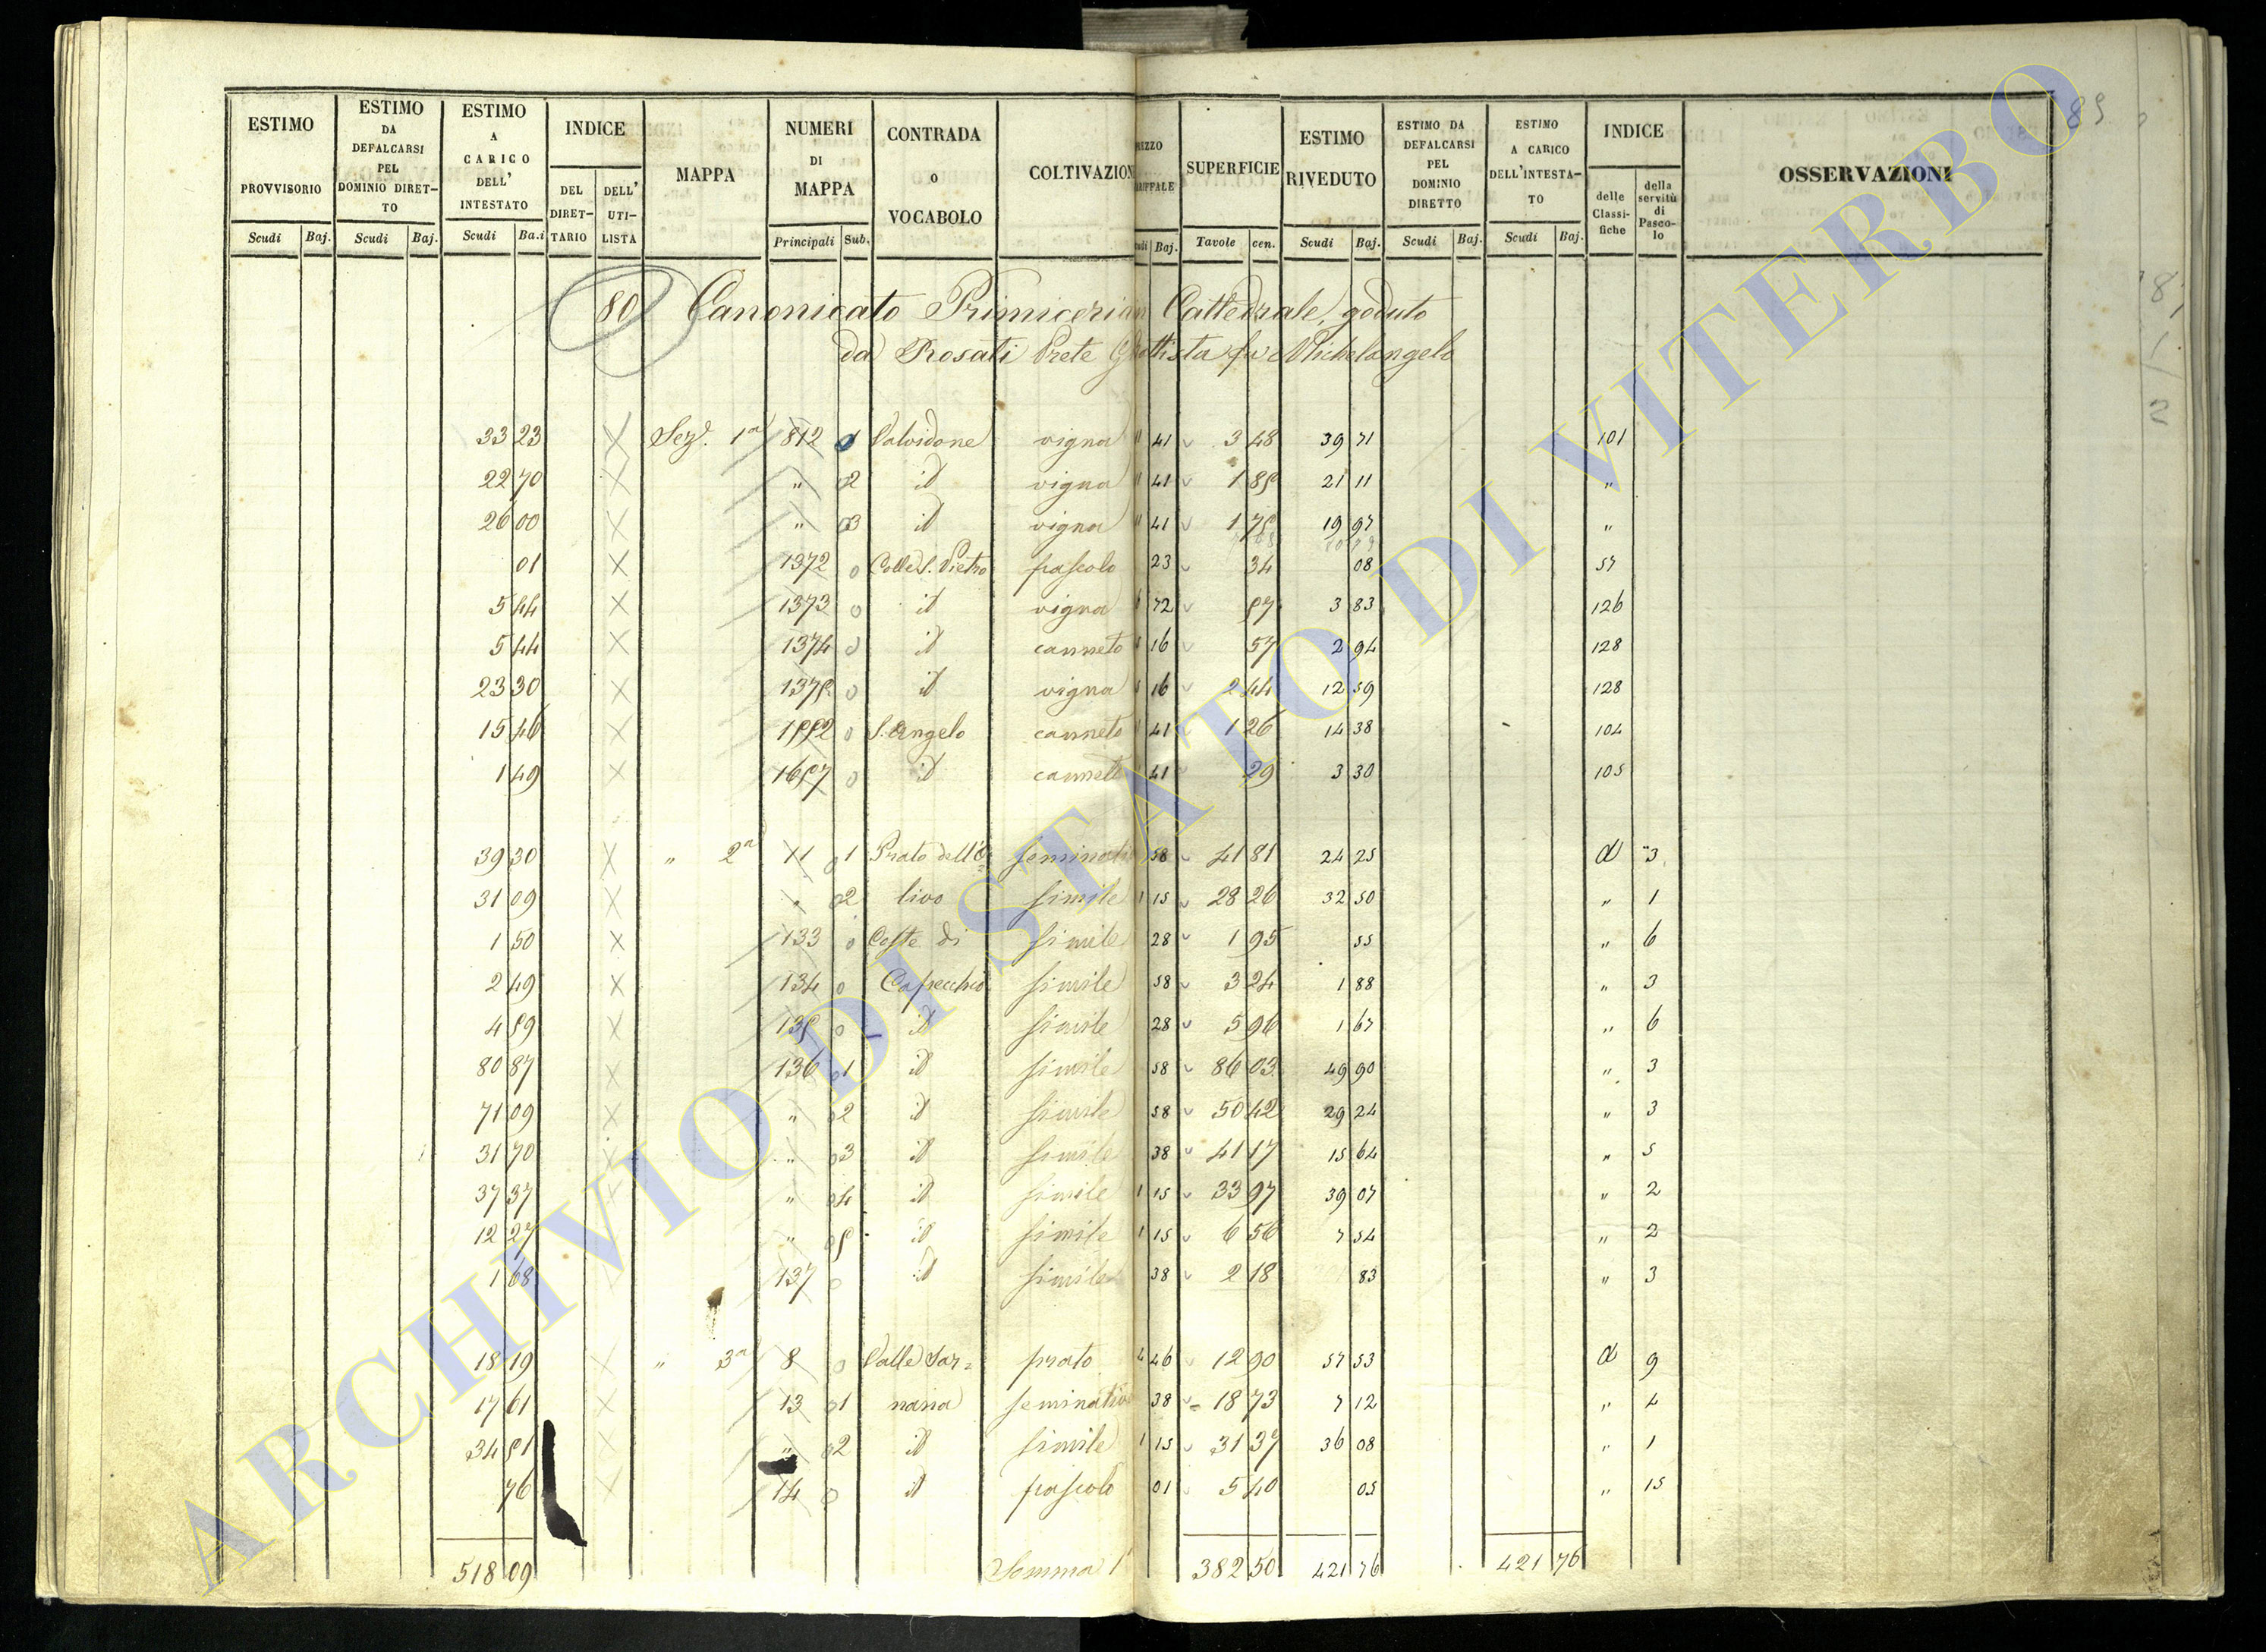 89
ESTIMO PROVVISORIO Scudi Baj.
ESTIMO DA DEFALCARSI PEL DOMINIO DIRET-TO Scudi Baj.
ESTIMO A CARICO DELL' INTESTATO Scudi Ba.i
INDICE DEL DIRET-TARIO DELL' UTI-LISTA
MAPPA
NUMERI DI MAPPA Principali Sub.
CONTRADA o VOCABOLO
COLTIVAZION
SUPERFICIE Tavole cen.
ESTIMO RIVEDUTO Scudi Baj.
ESTIMO DA DEFALCARSI PEL DOMINIO DIRETTO Scudi Baj.
ESTIMO A CARICO DELL'INTESTA-TO Scudi Baj.
INDICE delle Classi-fiche della servitù di Pasco-lo
OSSERVAZIONI
80 Canonicato Primicerian Cattedrale, goduto
da Rosati Prete Gio Battista fu Michelangelo
33 23 Sez.e 1a 812 1 Valvidone vigna 41 3 48 39 71 101
22 70 " 2 id vigna 41 1 85 21 11 "
26 00 " 3 id vigna 41 1 75 19 97 "
01 1372 Colle S. Pietro pascolo 23 34 08 57
5 44 1373 id vigna 6 72 57 3 83 126
5 44 1374 id canneto 5 16 57 2 94 128
23 30 1375 id vigna 5 16 2 44 12 59 128
15 46 1552 S. Angelo canneto 41 1 26 14 38 104
1 49 1657 id canneto 41 29 3 30 105
39 30 " 2a 11 1 Prato dell'o= seminati 58 41 81 24 25 a 3
31 09 " 2 livo simile 1 15 28 26 32 50 " 1
1 50 133 Coste di simile 28 1 95 55 " 6
2 49 134 Capecchio simile 58 3 24 1 88 " 3
4 59 135 id simile 28 5 96 1 67 " 6
80 87 136 1 id simile 58 86 03 49 90 " 3
71 09 " 2 id simile 58 50 42 29 24 " 3
31 70 " 3 id simile 38 41 17 15 64 " 5
37 37 " 4 id simile 1 15 33 97 39 07 " 2
12 27 " 5 id simile 1 15 6 56 7 54 " 2
1 68 137 id simile 38 2 18 83 " 3
18 19 " 3a 8 Valle Jar= prato 4 46 12 90 57 53 a 9
17 61 13 1 nana seminativo 38 18 73 7 12 " 4
34 51 " 2 id simile 1 15 31 37 36 08 " 1
76 14 id pascolo 01 5 40 05 " 15
518 09 Somma 382 50 421 76 421 76
ARCHIVIO DI STATO DI VITERBO